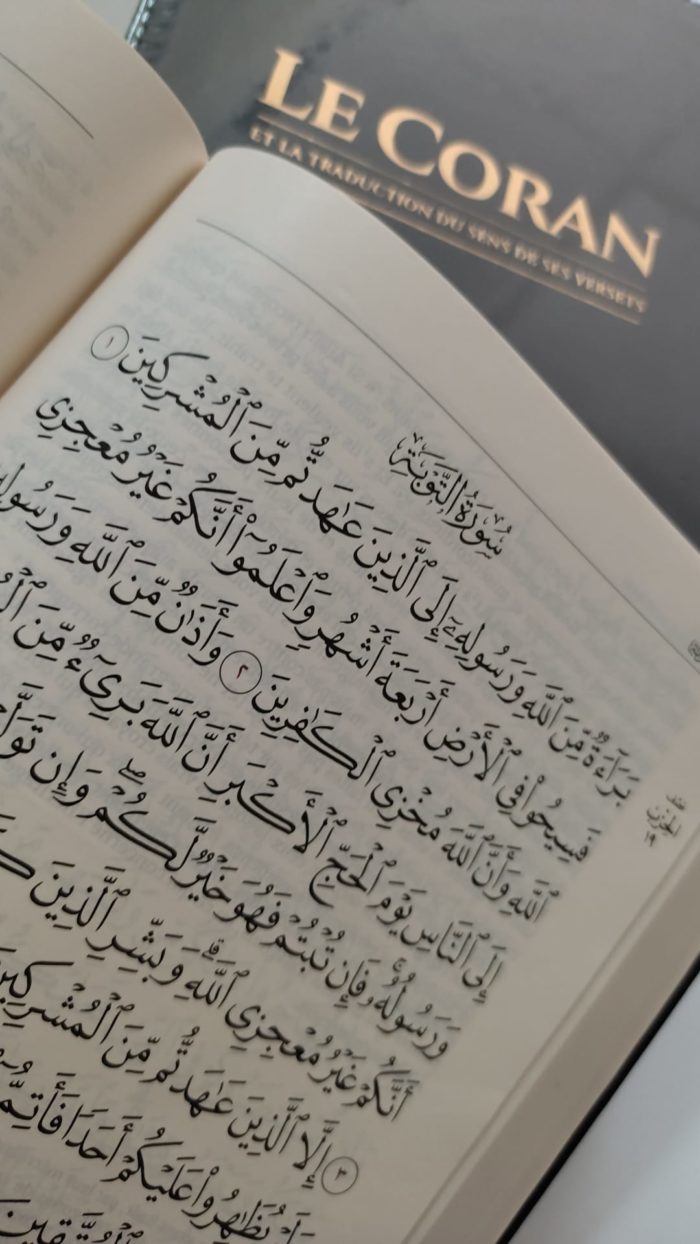 LE CORAN
ET LA TRADUCTION DU SENS DE SES VERSETS
سُورَةُ التَّوْبَةِ
بَرَآءَةٌ مِّنَ ٱللَّهِ وَرَسُولِهِۦٓ إِلَى ٱلَّذِينَ عَٰهَدتُّم مِّنَ ٱلْمُشْرِكِينَ ١
فَسِيحُوا۟ فِى ٱلْأَرْضِ أَرْبَعَةَ أَشْهُرٍ وَٱعْلَمُوٓا۟ أَنَّكُمْ غَيْرُ مُعْجِزِى
ٱللَّهِ وَأَنَّ ٱللَّهَ مُخْزِى ٱلْكَٰفِرِينَ ٢ وَأَذَٰنٌ مِّنَ ٱللَّهِ وَرَسُولِهِ
إِلَى ٱلنَّاسِ يَوْمَ ٱلْحَجِّ ٱلْأَكْبَرِ أَنَّ ٱللَّهَ بَرِىٓءٌ مِّنَ
وَرَسُولُهُۥ فَإِن تُبْتُمْ فَهُوَ خَيْرٌ لَّكُمْ وَإِن
أَنَّكُمْ غَيْرُ مُعْجِزِى ٱللَّهِ وَبَشِّرِ ٱلَّذِينَ
٣ إِلَّا ٱلَّذِينَ عَٰهَدتُّم مِّنَ ٱلْمُشْرِكِينَ
عَلَيْكُمْ أَحَدًا فَأَتِمُّ
١٩